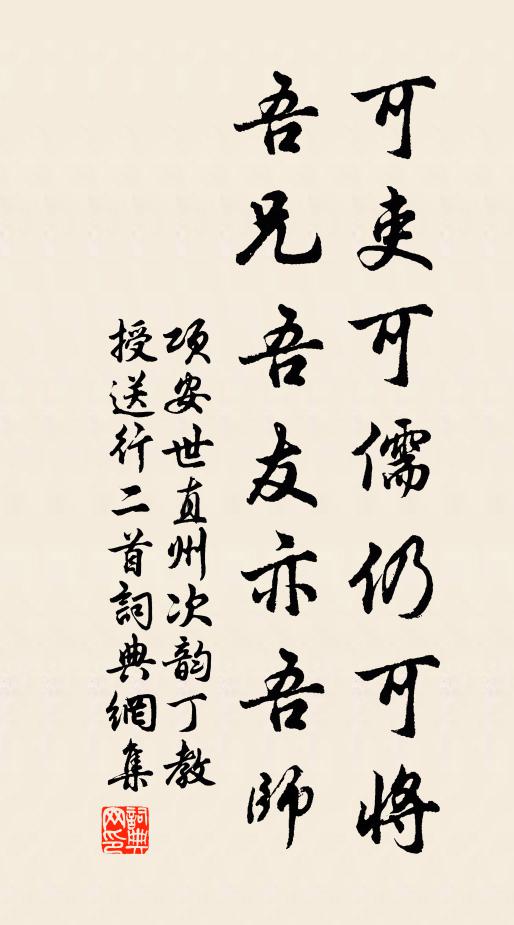 可吏可儒仍可將
吾兄吾友亦吾師
項安世直州次韵丁教
授送行二首詞典網集
詞典
网印